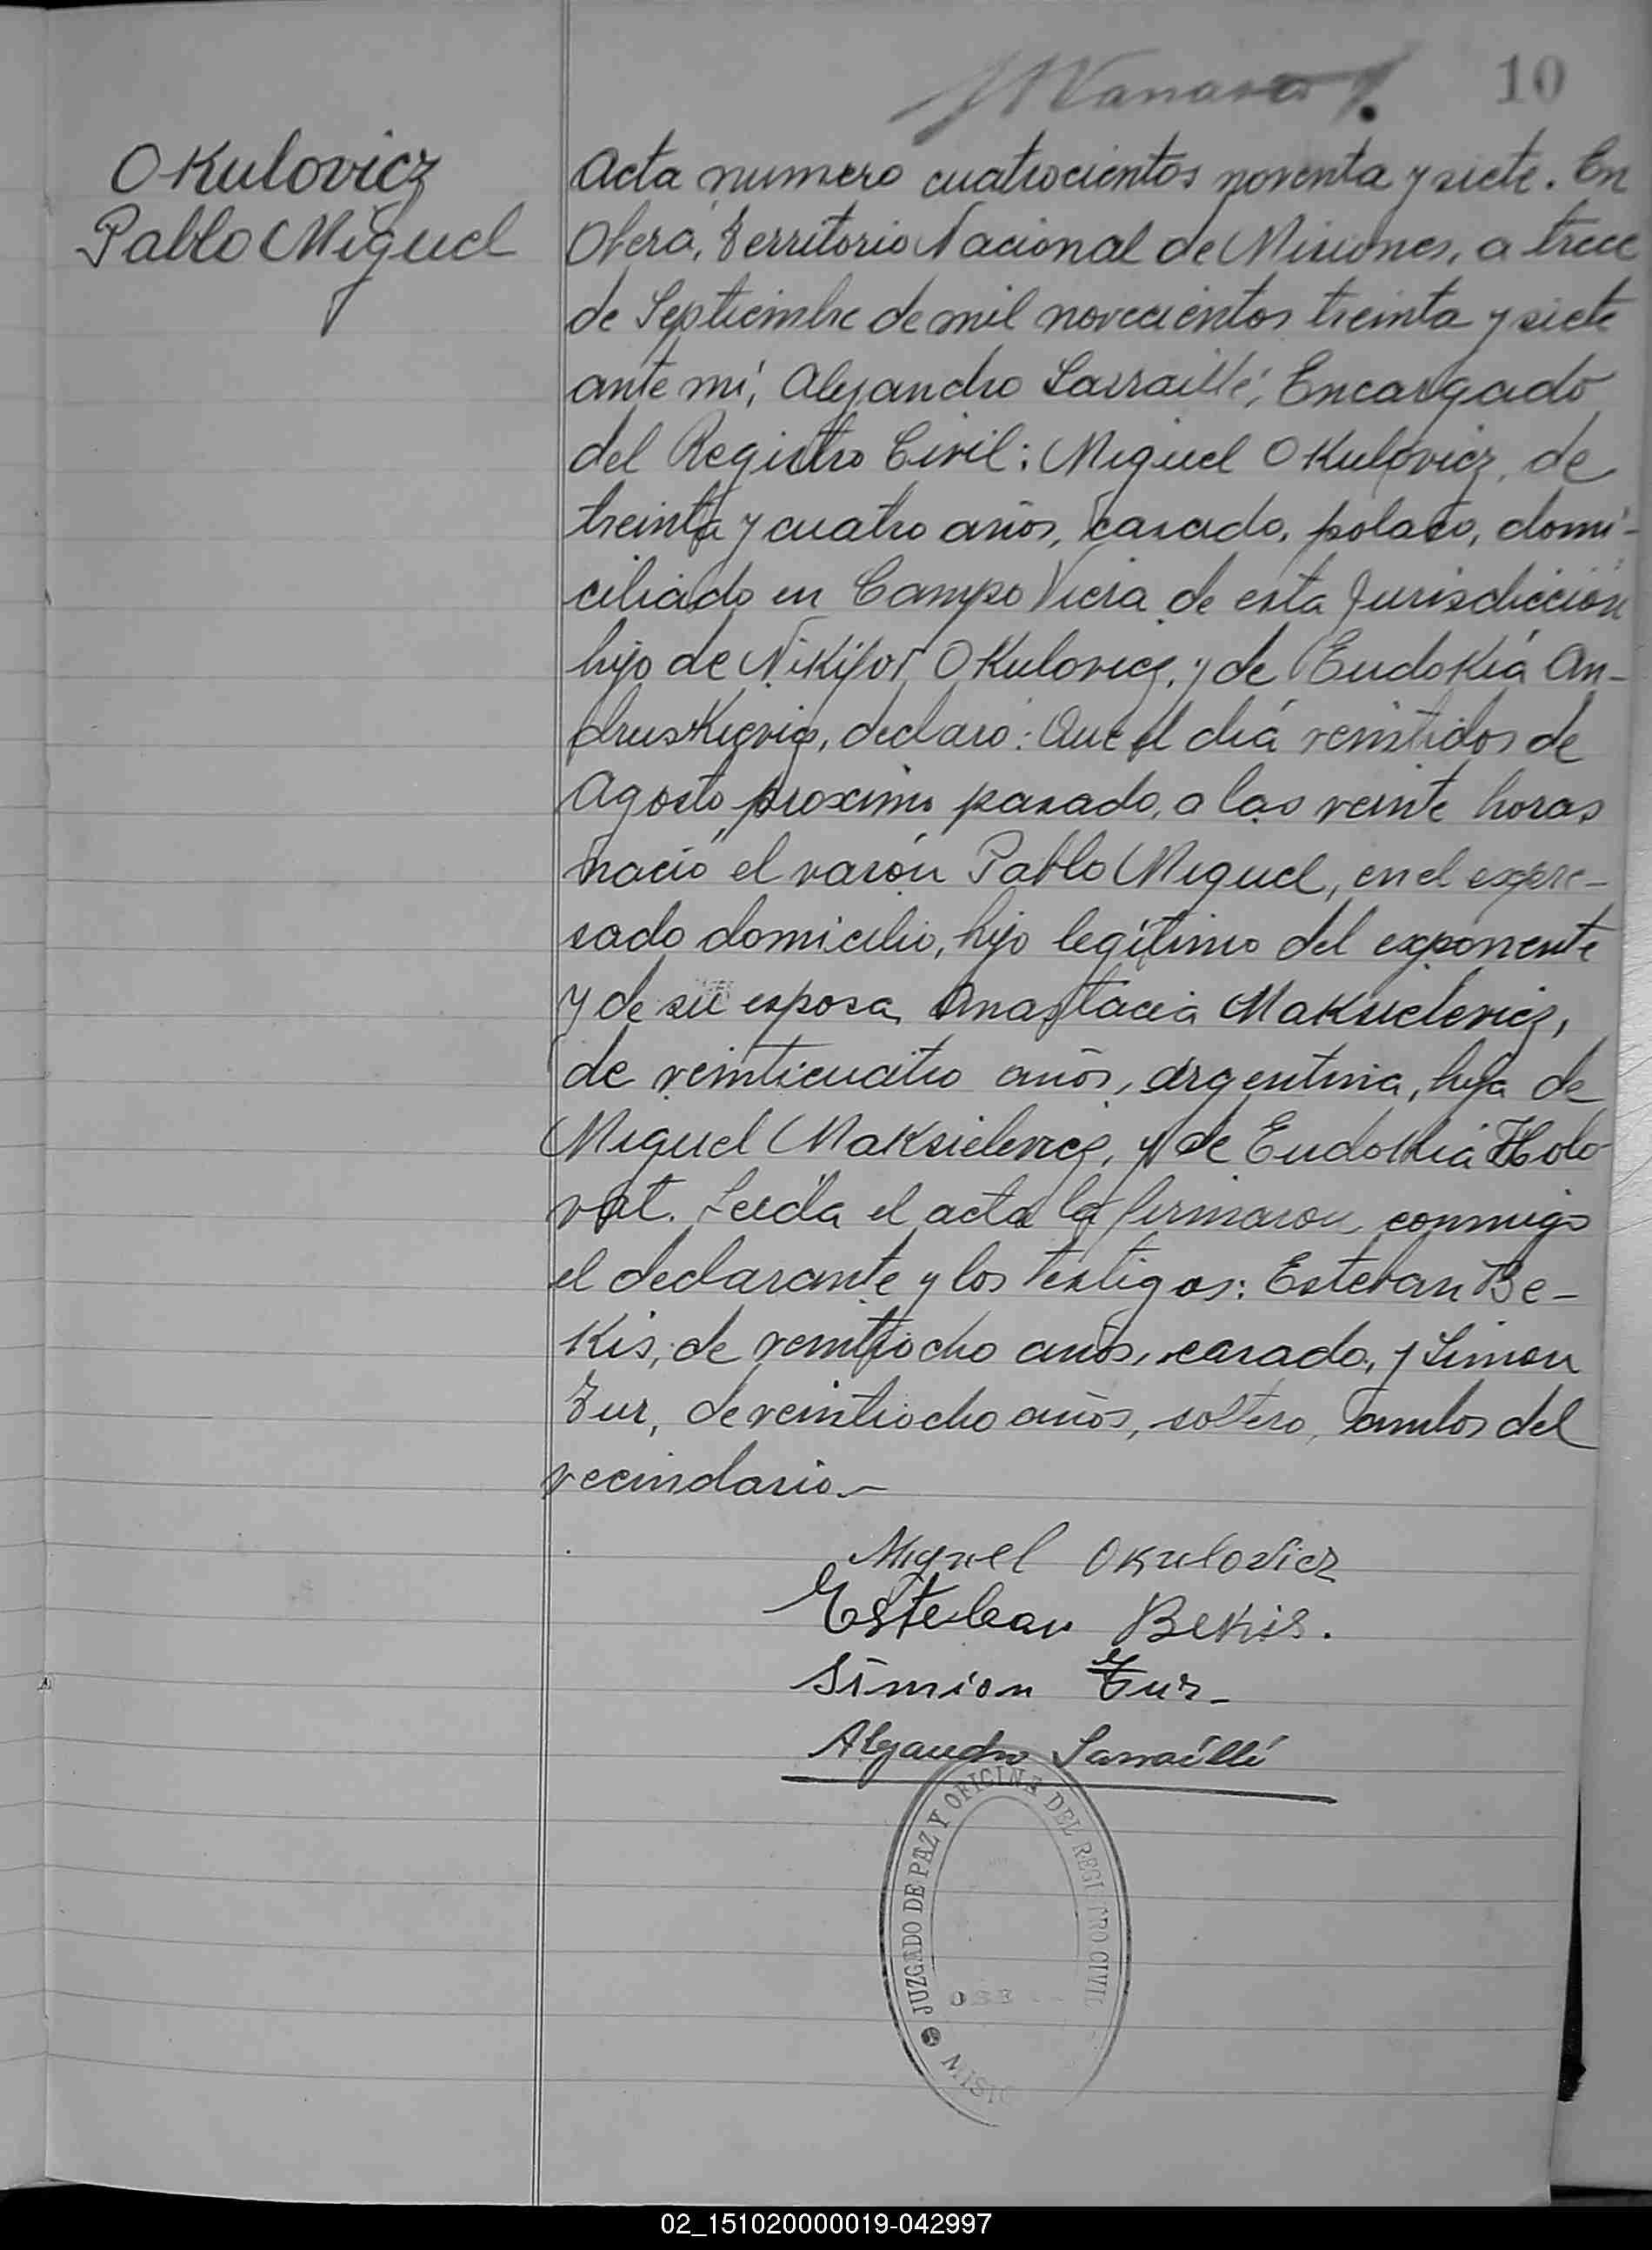 10
Okulovicz
Pablo Miguel
Acta numero cuatrocientos noventa y siete. En
Oberá, Territorio Nacional de Misiones, a trece
de Septiembre de mil novecientos treinta y siete
ante mí, Alejandro Sarraillé, Encargado
del Registro Civil: Miguel Okulovicz, de
treinta y cuatro años, casado, polaco, domi-
ciliado en Campo Viera de esta Jurisdicción
hijo de Nikifor Okulovicz, y de Eudokia An-
druskievig, declaró: Que el día veintidos de
Agosto proximo pasado, a las veinte horas
nació el varón Pablo Miguel, en el expre-
sado domicilio, hijo legítimo del exponente
y de su esposa Anastacia Maksielevicz,
de veinticuatro años, argentina, hija de
Miguel Maksielevicz, y de Eudokia Holo-
vat. Leída el acta la firmaron conmigo
el declarante y los testigos: Esteban Be-
kis, de veintiocho años, casado, y Simon
Tur, de veintiocho años, soltero, ambos del
vecindario.-
Miguel Okulovicz
Esteban Bekis.
Simion Tur-
Alejandro Sarraillé
JUZGADO DE PAZ Y OFICINA DEL REGISTRO CIVIL
02_151020000019-042997